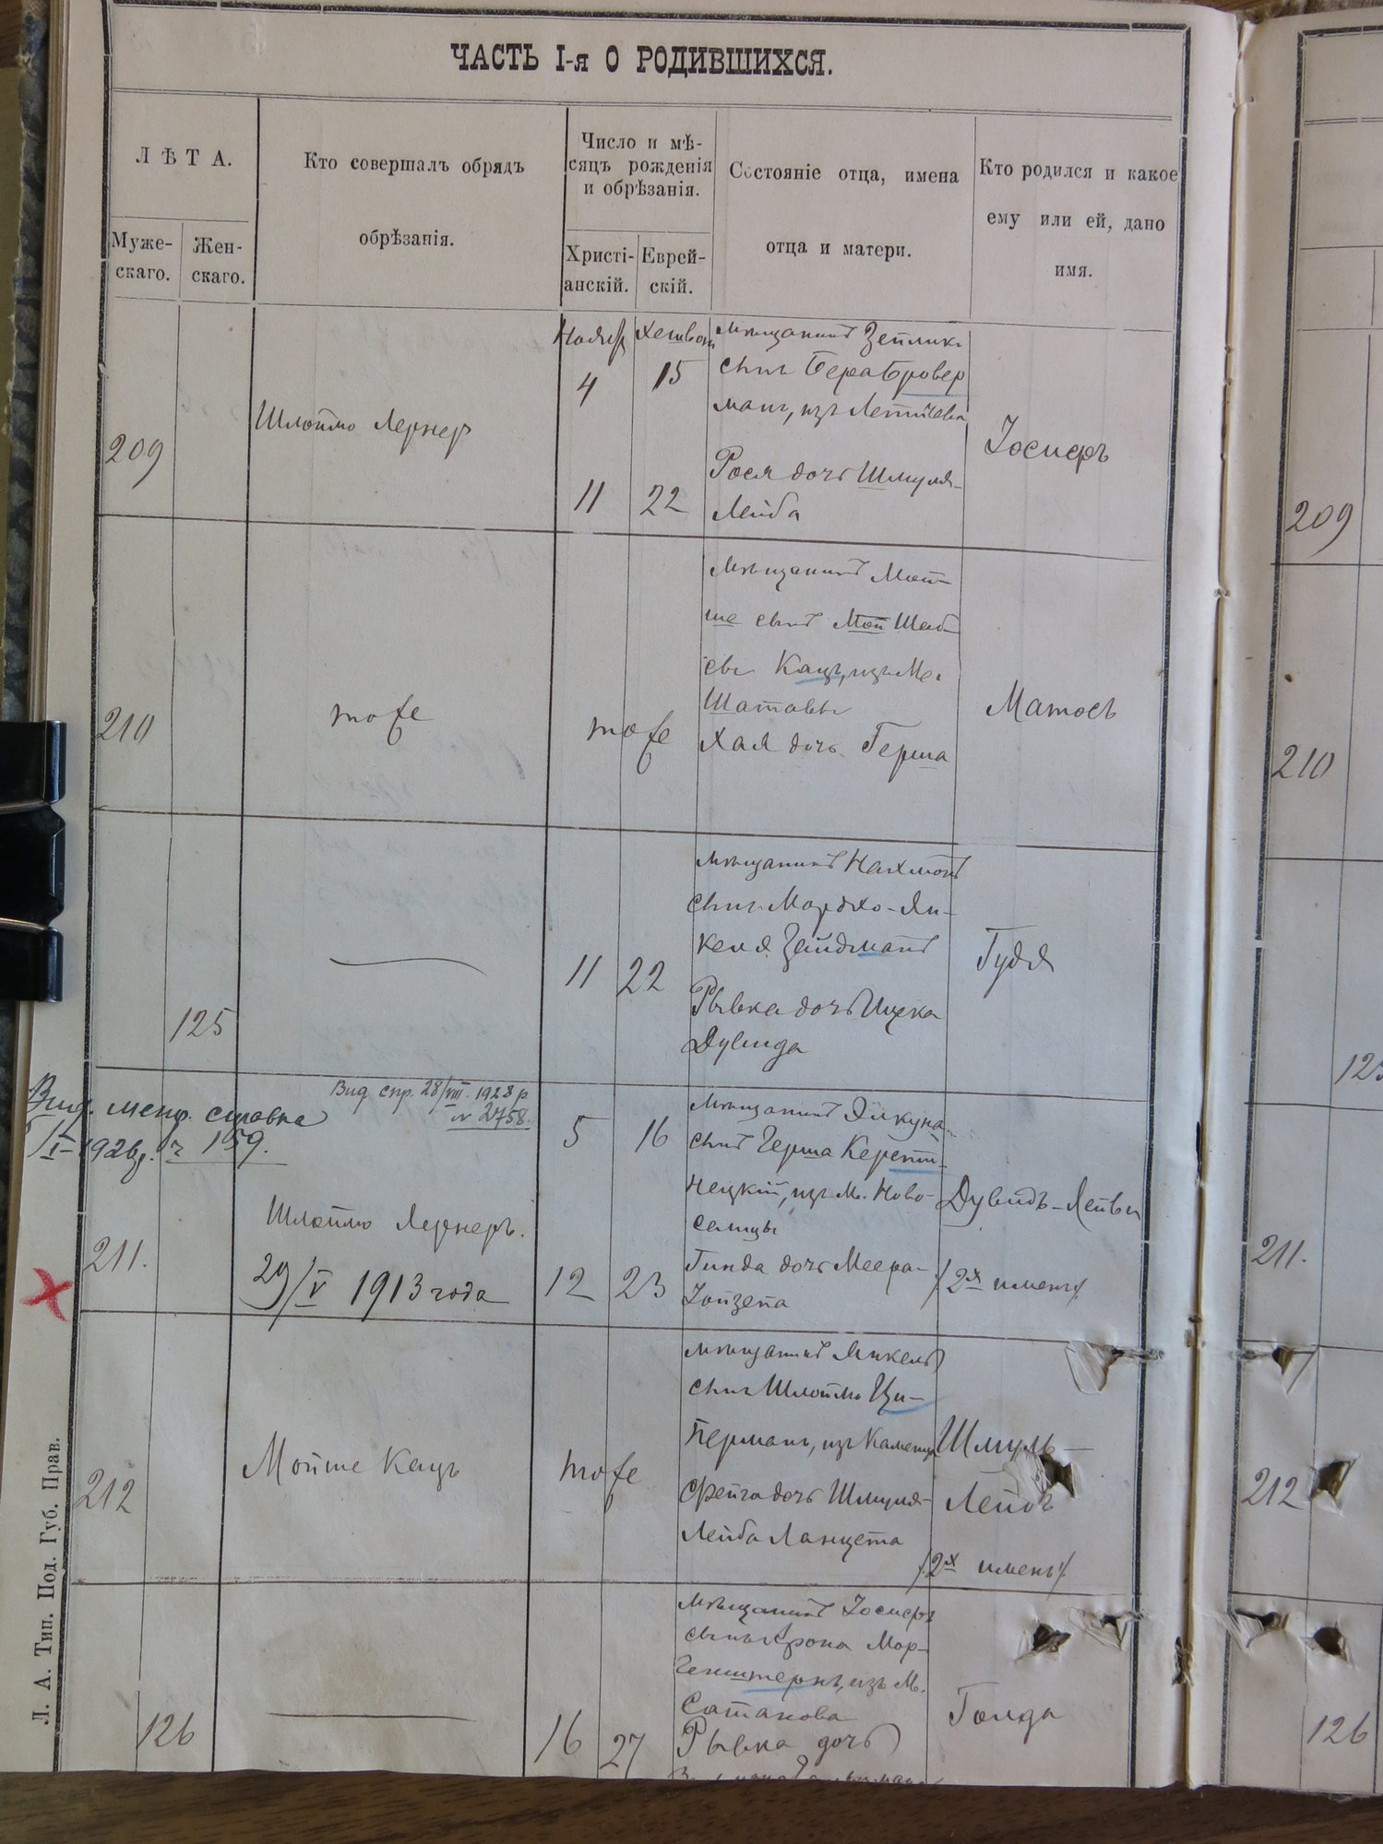 ЧАСТЬ I-я О РОДИВШИХСЯ.
ЛѢТА.
Муже-
скаго.
Жен-
скаго.
Кто совершалъ обрядъ
обрѣзанія.
Число и мѣ-
сяцъ рожденія
и обрѣзанія.
Христі-
анскій.
Еврей-
скій.
Состояніе отца, имена
отца и матери.
Кто родился и какое
ему или ей, дано
имя.
209
Шлойма Лернеръ
Ноябр
4
11
Хешвон
15
22
мѣщанинъ Зейлик
сынъ Бера Бровер
манъ, изъ Летичева
Рося дочь Шмуля-
Лейба
Іосифъ
209
210
тоже
тоже
мѣщанинъ Мой-
ше сынъ
Кацъ, изъ м.
Шатавы
Хая дочь Герша
Матосъ
210
125
11
22
мѣщанинъ Нахманъ
сынъ Мордхо-Ян-
келя Зейдманъ
Рывка дочь Ицка
Дувида
Гудя
125
Вид. метр. справка
1926 г. ч 159.
Вид спр. 28/VIII 1928 р
№ 2758.
211.
Шлойма Лернеръ.
29/V 1913 года
5
12
16
23
мѣщанинъ Элкуна
сынъ Герша Керепи-
нецкій, изъ м. Ново-
селицы
Гинда дочь Меера-
Іойзепа
Дувидъ-Лейбы
/2х именъ/
211.
212
Мойше Кацъ
тоже
мѣщанинъ Янкель
сынъ Шлоймы Ци-
перманъ, изъ Каменца
Фрейга дочь Шмуля-
Лейба Ланцета
Шмуль-
Лейбъ
/2х именъ/
212
126
16
27
мѣщанинъ Іосифъ
сынъ Арона Мор-
генштернъ, изъ м.
Сатанова
Рывка дочь
Голда
126
Л. А. Тип. Под. Губ. Прав.